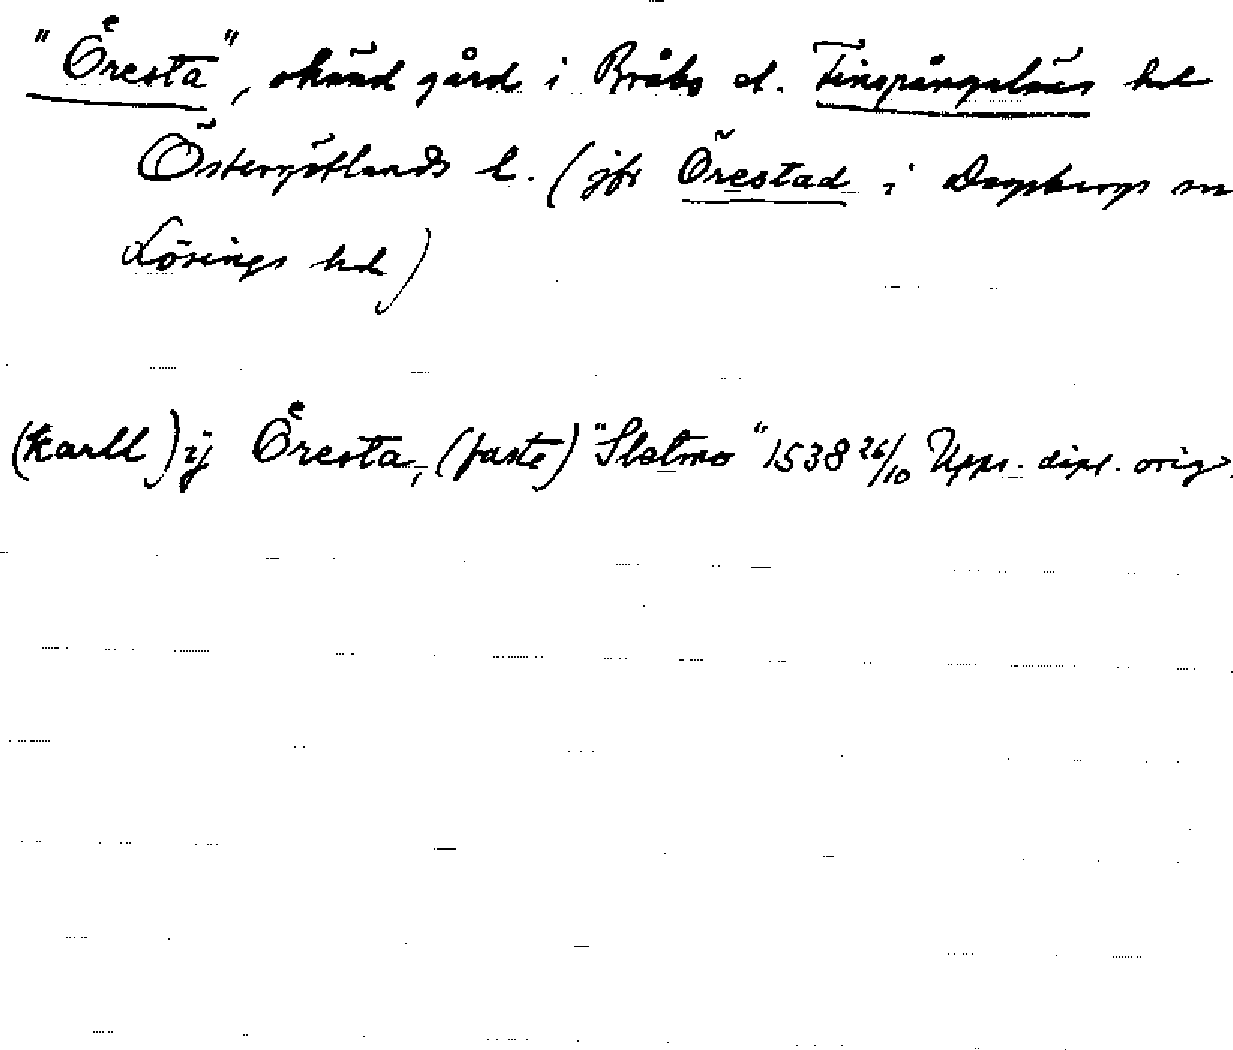 "Oͤresta", okänd gård i Bråbo el. Finspångaläns hd
Östergötlands l. (jfr Örestad i Dagsbergs sn
Lösings hd)
(karll) ij Oͤresta, (faste) "Slatmo" 1538 26/10 Upps. dipl. orig.